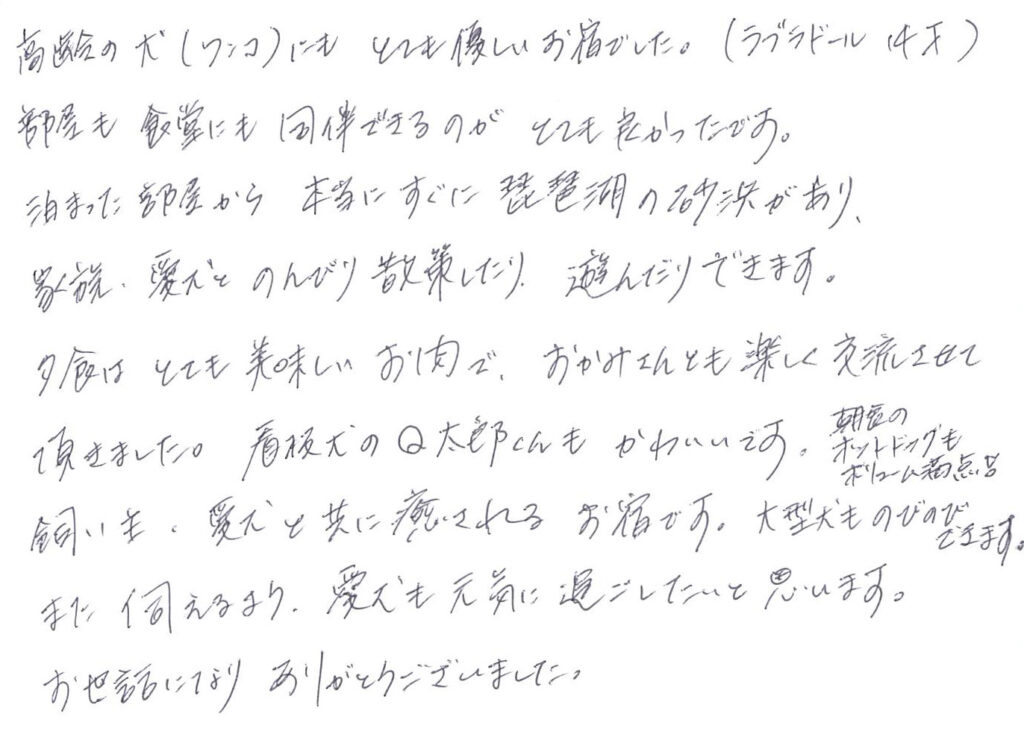 高齢の犬(ワンコ)にも とても優しいお宿でした。(ラブラドール 14才)
部屋も 食堂にも 同伴できるのが とても良かったです。
泊まった部屋から 本当にすぐに琵琶湖の砂浜があり、
家族、愛犬と のんびり散策したり、遊んだりできます。
夕食は とても美味しいお肉で、おかみさんとも楽しく交流させて
頂きました。看板犬のQ太郎くんも かわいいです。
朝食の
ホットドッグも
ボリューム満点
飼い主、愛犬と共に癒されるお宿です。大型犬ものびのび
できます。
また 伺えるよう、愛犬も元気に過ごしたいと思います。
お世話になり ありがとうございました。